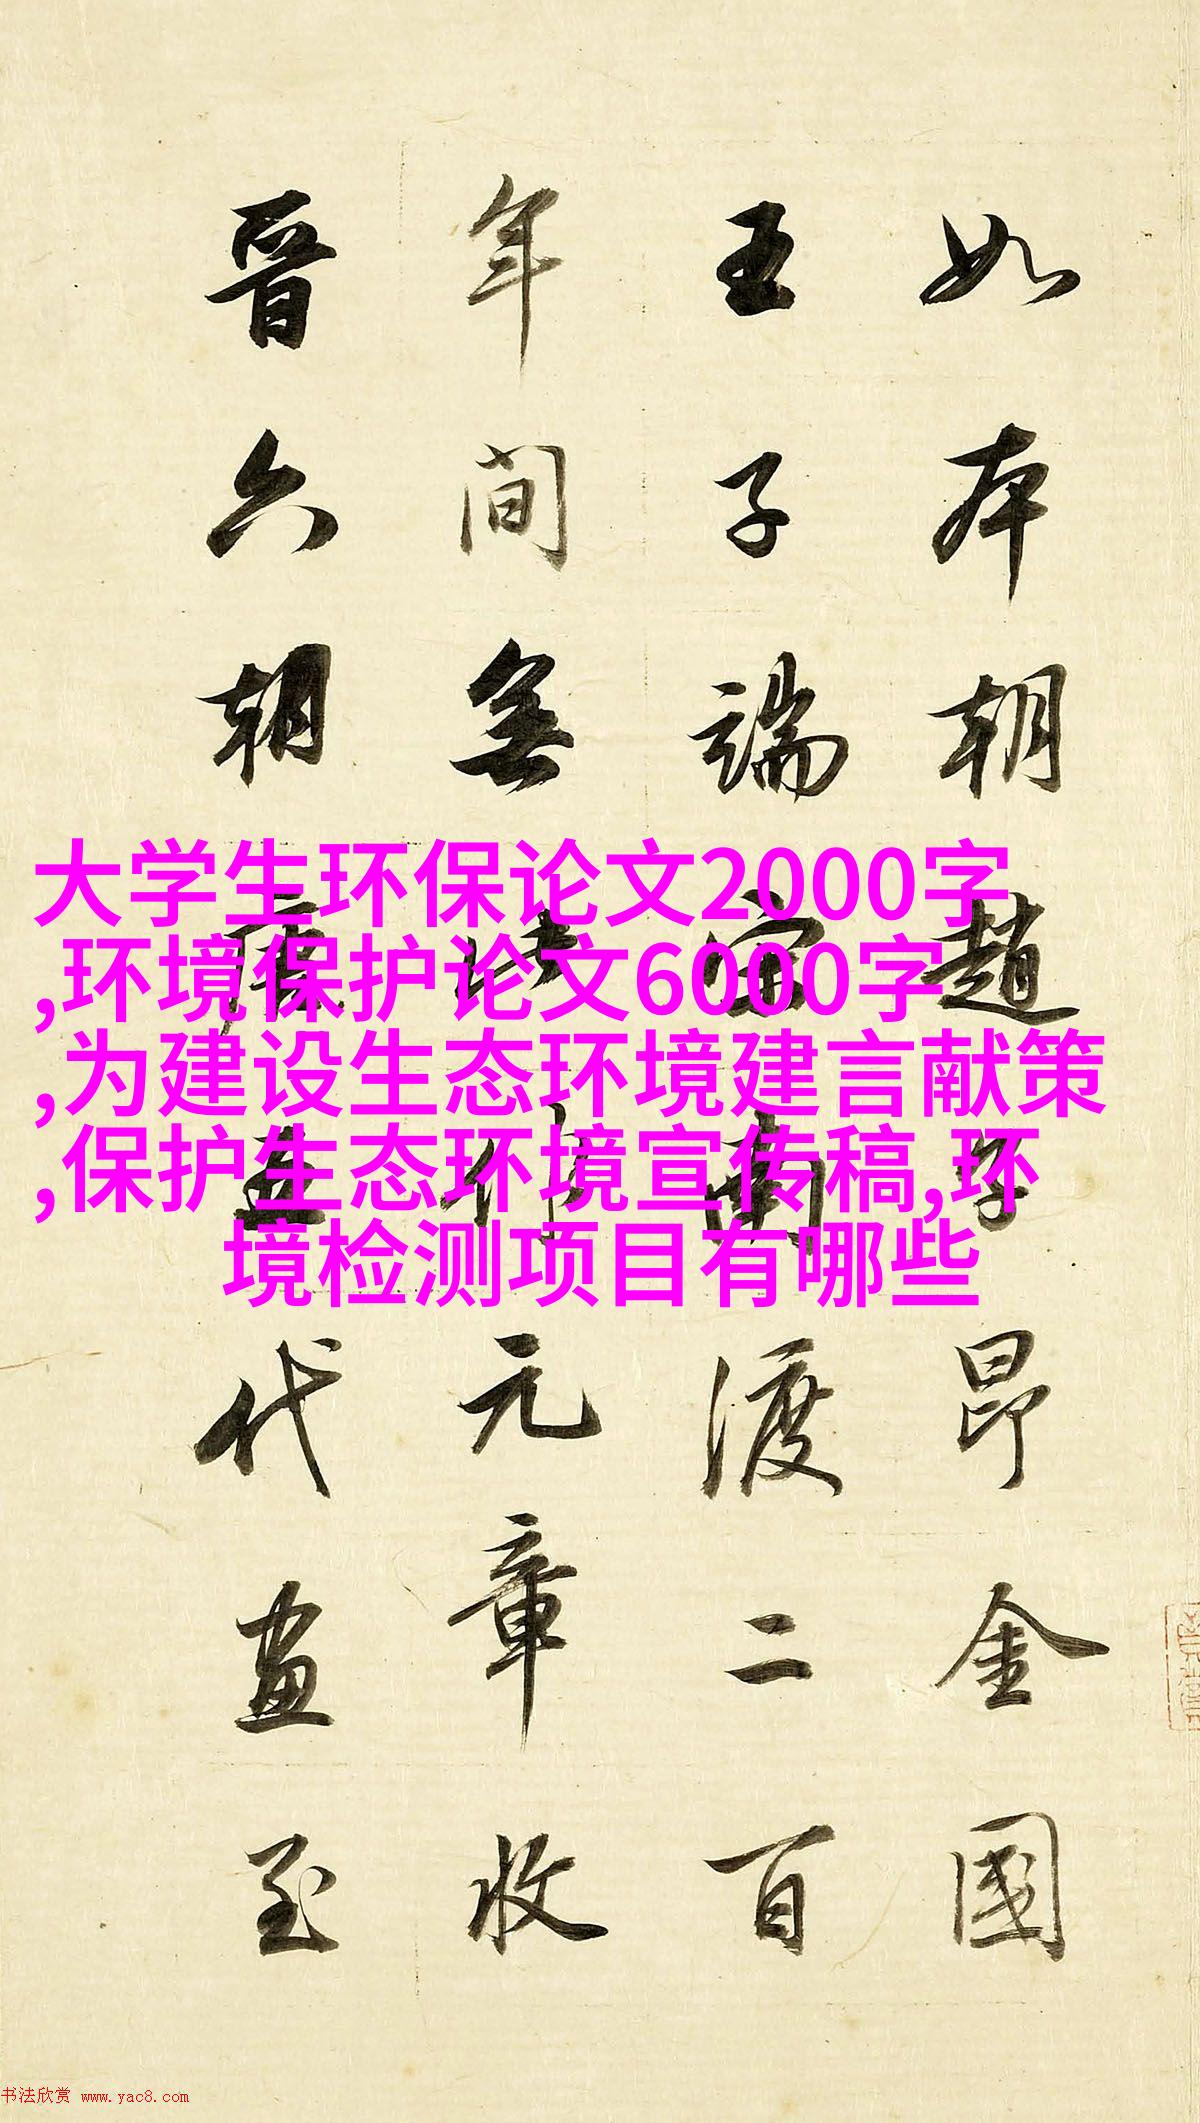 如本朝趙子昂金國
王子端宋南渡二百
年間無此作元章收
晉六朝唐五代畫至
大学生环保论文2000字
,环境保护论文6000字
,为建设生态环境建言献策
,保护生态环境宣传稿,环
境检测项目有哪些
书法欣赏 www.yac8.com